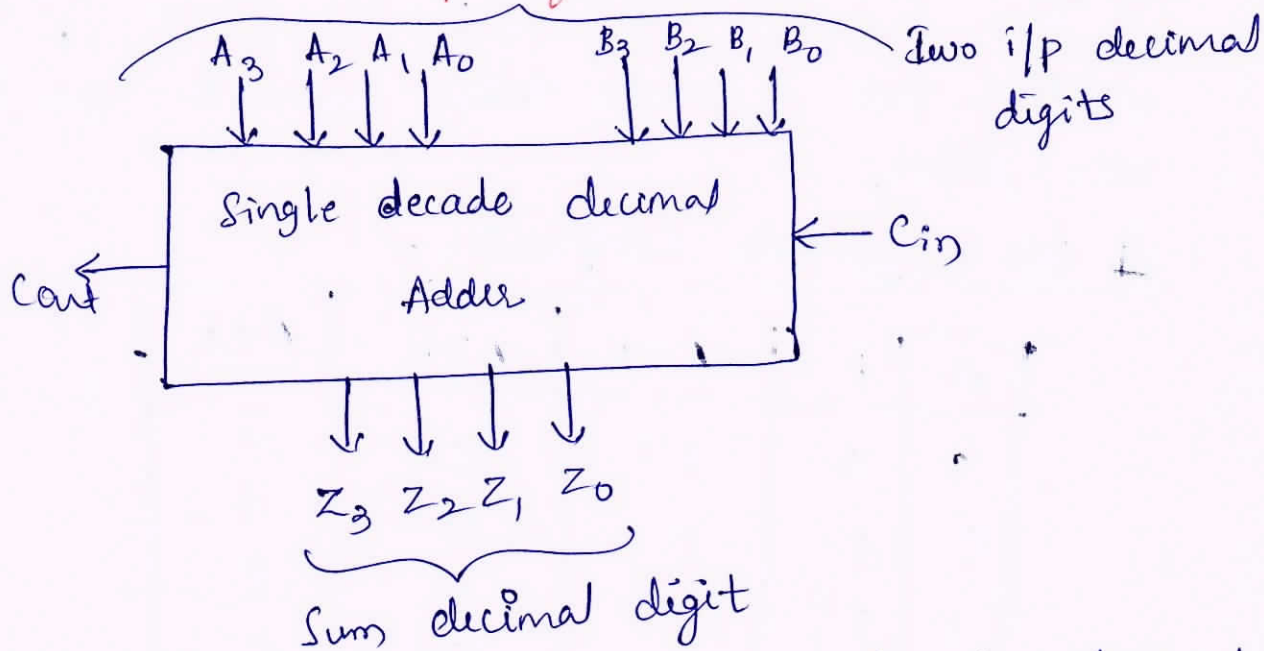 A3 A2 A1 A0 B3 B2 B1 B0 Two i/p decimal
digits
Single decade decimal
Cin
Adder.
Cout
Z3 Z2 Z1 Z0
Sum decimal digit